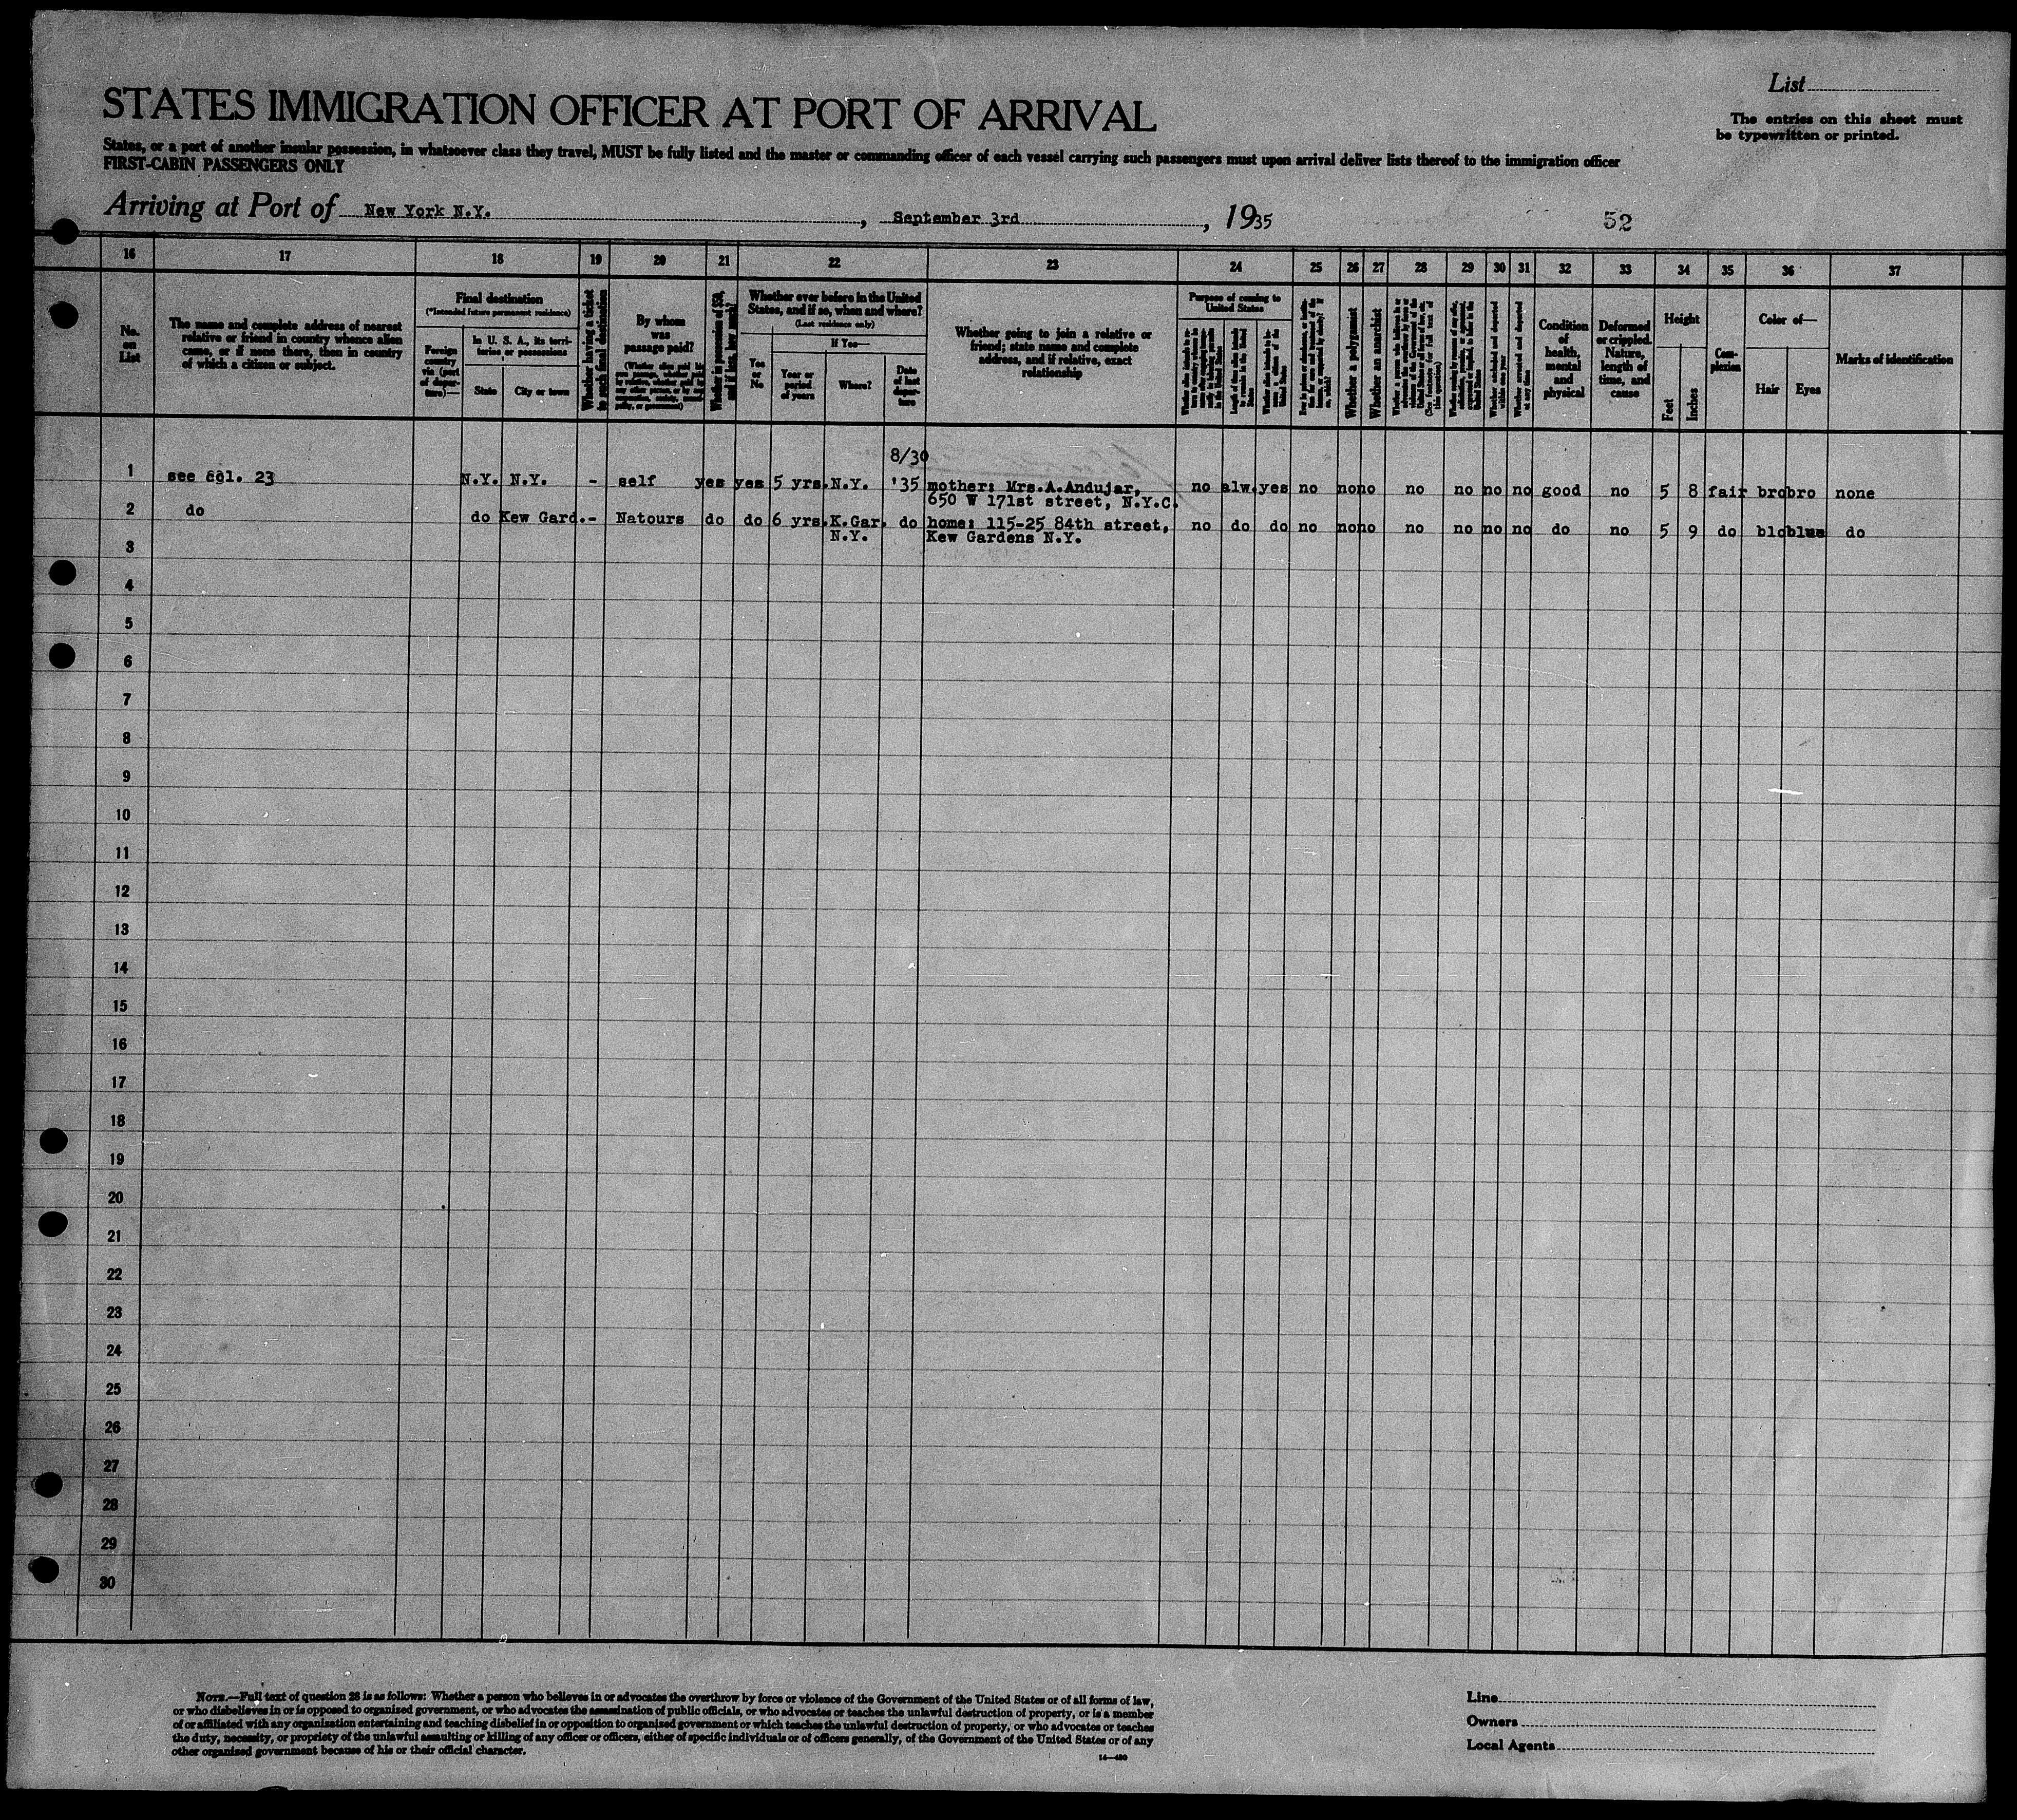 List
STATES IMMIGRATION OFFICER AT PORT OF ARRIVAL
The entries on this sheet must
be typewritten or printed.
States, or a port of another insular possession, in whatsoever class they travel, MUST be fully listed and the master or commanding officer of each vessel carrying such passengers must upon arrival deliver lists thereof to the immigration officer
FIRST-CABIN PASSENGERS ONLY
Arriving at Port of New York N.Y., September 3rd, 1935 52
16 17 18 19 20 21 22 23 24 25 26 27 28 29 30 31 32 33 34 35 36 37
No. on List
The name and complete address of nearest
relative or friend in country whence alien
came, or if none there, then in country
of which a citizen or subject.
Final destination
(*Intended future permanent residence)
Foreign country via (port of departure)—
In U. S. A., its territories or possessions
State
City or town
Whether having a ticket to such final destination
By whom was passage paid?
Whether in possession of $50, and if less, how much?
Whether ever before in the United
States, and if so, when and where?
(Last residence only)
Yes or No
If Yes—
Year or period of years
Where?
Date of last departure
Whether going to join a relative or
friend; state name and complete
address, and if relative, exact
relationship
Purpose of coming to
United States
Whether a polygamist
Whether an anarchist
Condition of health, mental and physical
Deformed or crippled. Nature, length of time, and cause
Height
Feet
Inches
Complexion
Color of—
Hair
Eyes
Marks of identification
8/30
1 see col. 23 N.Y. N.Y. - self yes yes 5 yrs. N.Y. '35 mother: Mrs.A.Andujar, no alw. yes no no no no no no no good no 5 8 fair bro bro none
650 W 171st street, N.Y.C.
2 do do Kew Gard. - Natours do do 6 yrs. K.Gar. do home: 115-25 84th street, no do do no no no no no no no do no 5 9 do blo blue do
N.Y. Kew Gardens N.Y.
3
4
5
6
7
8
9
10
11
12
13
14
15
16
17
18
19
20
21
22
23
24
25
26
27
28
29
30
NOTE.—Full text of question 28 is as follows: Whether a person who believes in or advocates the overthrow by force or violence of the Government of the United States or of all forms of law,
or who disbelieves in or is opposed to organized government, or who advocates the assassination of public officials, or who advocates or teaches the unlawful destruction of property, or is a member
of or affiliated with any organization entertaining and teaching disbelief in or opposition to organized government or which teaches the unlawful destruction of property, or who advocates or teaches
the duty, necessity, or propriety of the unlawful assaulting or killing of any officer or officers, either of specific individuals or of officers generally, of the Government of the United States or of any
other organized government because of his or their official character.
14—480
Line
Owners
Local Agents